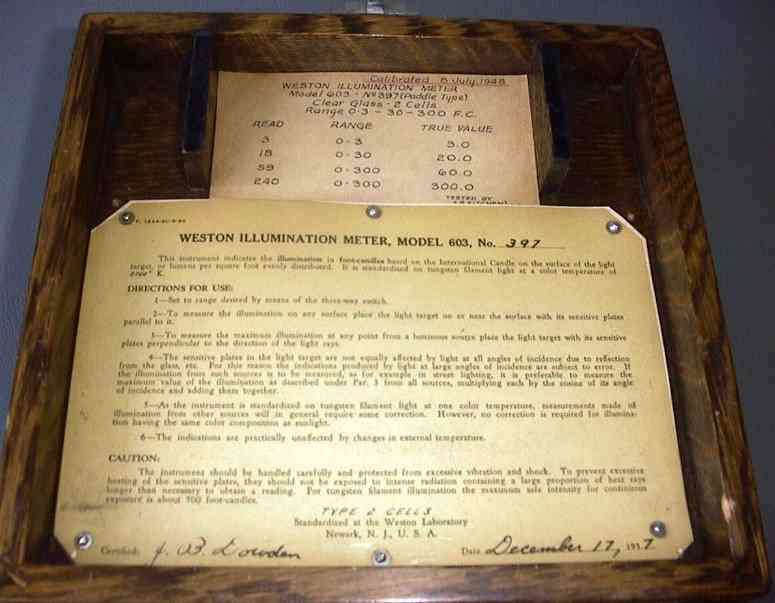 Calibrated 8 July, 1948
WESTON ILLUMINATION METER
Model 603 - No 397 (Paddle Type)
Clear Glass - 2 Cells
Range 0-3 - 30 - 300 F.C.
READ RANGE TRUE VALUE
3 0-3 3.0
18 0-30 20.0
59 0-300 60.0
240 0-300 300.0
TESTED BY
WESTON ILLUMINATION METER, MODEL 603, No. 397
This instrument indicates the illumination in foot-candles based on the International Candle on the surface of the light
target, or lumens per square foot evenly distributed. It is standardized on tungsten filament light at a color temperature of
K.
DIRECTIONS FOR USE:
1—Set to range desired by means of the three-way switch.
2—To measure the illumination on any surface place the light target on or near the surface with its sensitive plates
parallel to it.
3—To measure the maximum illumination at any point from a luminous source place the light target with its sensitive
plates perpendicular to the direction of the light rays.
4—The sensitive plates in the light target are not equally affected by light at all angles of incidence due to reflection
from the glass, etc. For this reason the indications produced by light at large angles of incidence are subject to error. If
the illumination from such sources is to be measured, as for example in street lighting, it is preferable to measure the
maximum value of the illumination as described under Par. 3 from all sources, multiplying each by the cosine of its angle
of incidence and adding them together.
5—As the instrument is standardized on tungsten filament light at one color temperature, measurements made of
illumination from other sources will in general require some correction. However, no correction is required for illumina-
tion having the same color composition as sunlight.
6—The indications are practically unaffected by changes in external temperature.
CAUTION:
The instrument should be handled carefully and protected from excessive vibration and shock. To prevent excessive
heating of the sensitive plates, they should not be exposed to intense radiation containing a large proportion of heat rays
longer than necessary to obtain a reading. For tungsten filament illumination the maximum safe intensity for continuous
exposure is about 500 foot-candles.
TYPE 2 CELLS
Standardized at the Weston Laboratory
Newark, N. J., U. S. A.
Certified: J. B. Dowden Date December 17, 1937